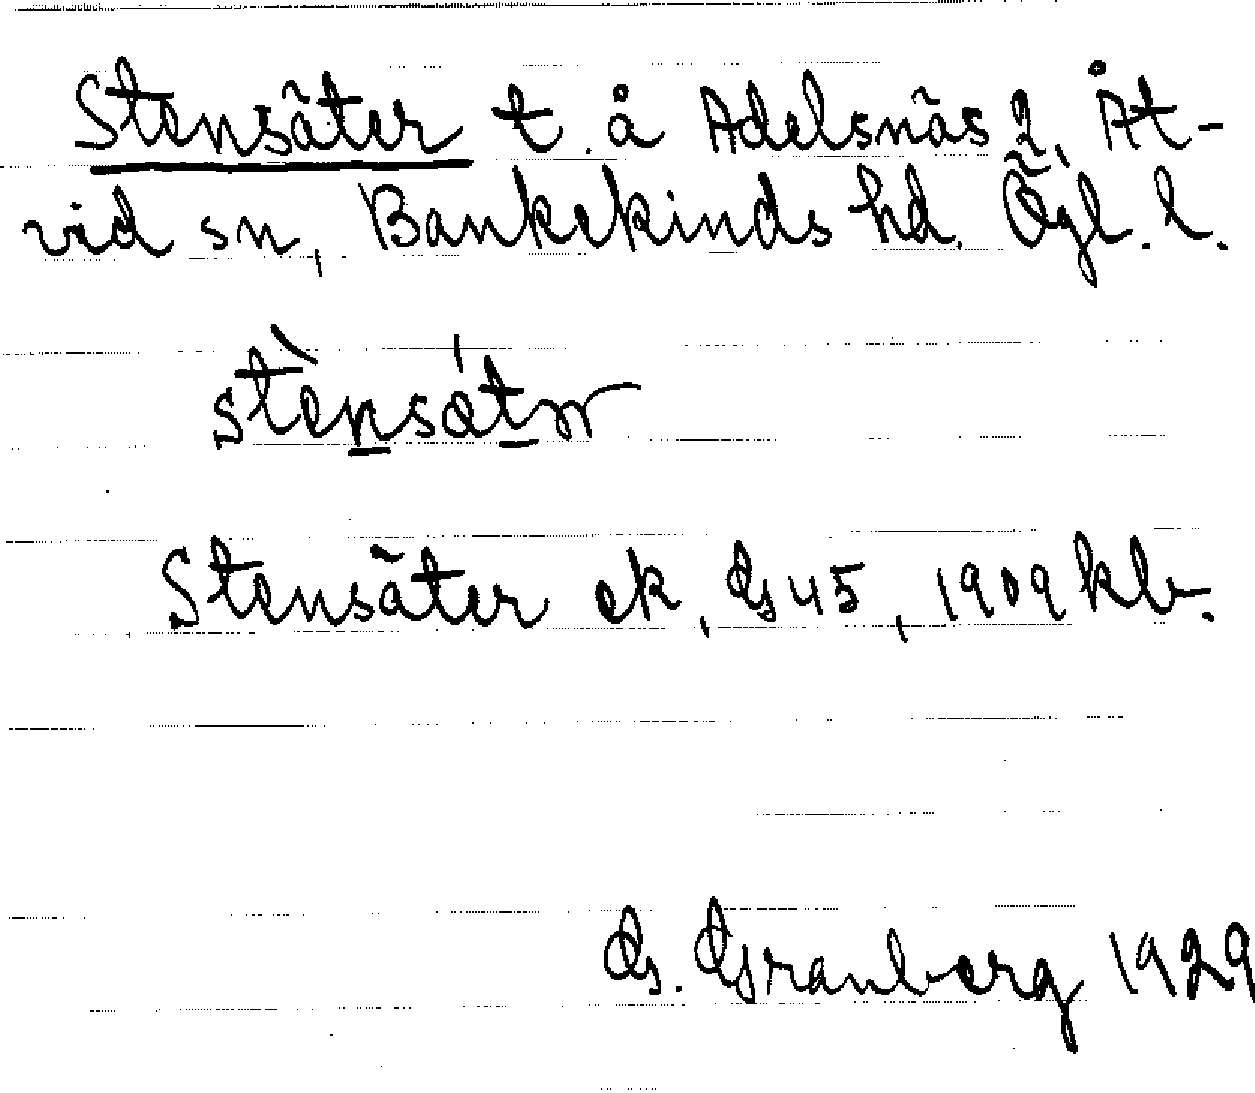 Stensäter t. å Adelsnäs 2, Åt-
vid sn, Bankekinds hd. Ögl. l.
stènsátr
Stensäter ek, Gs 45, 1909 kb.
G. Granberg 1929